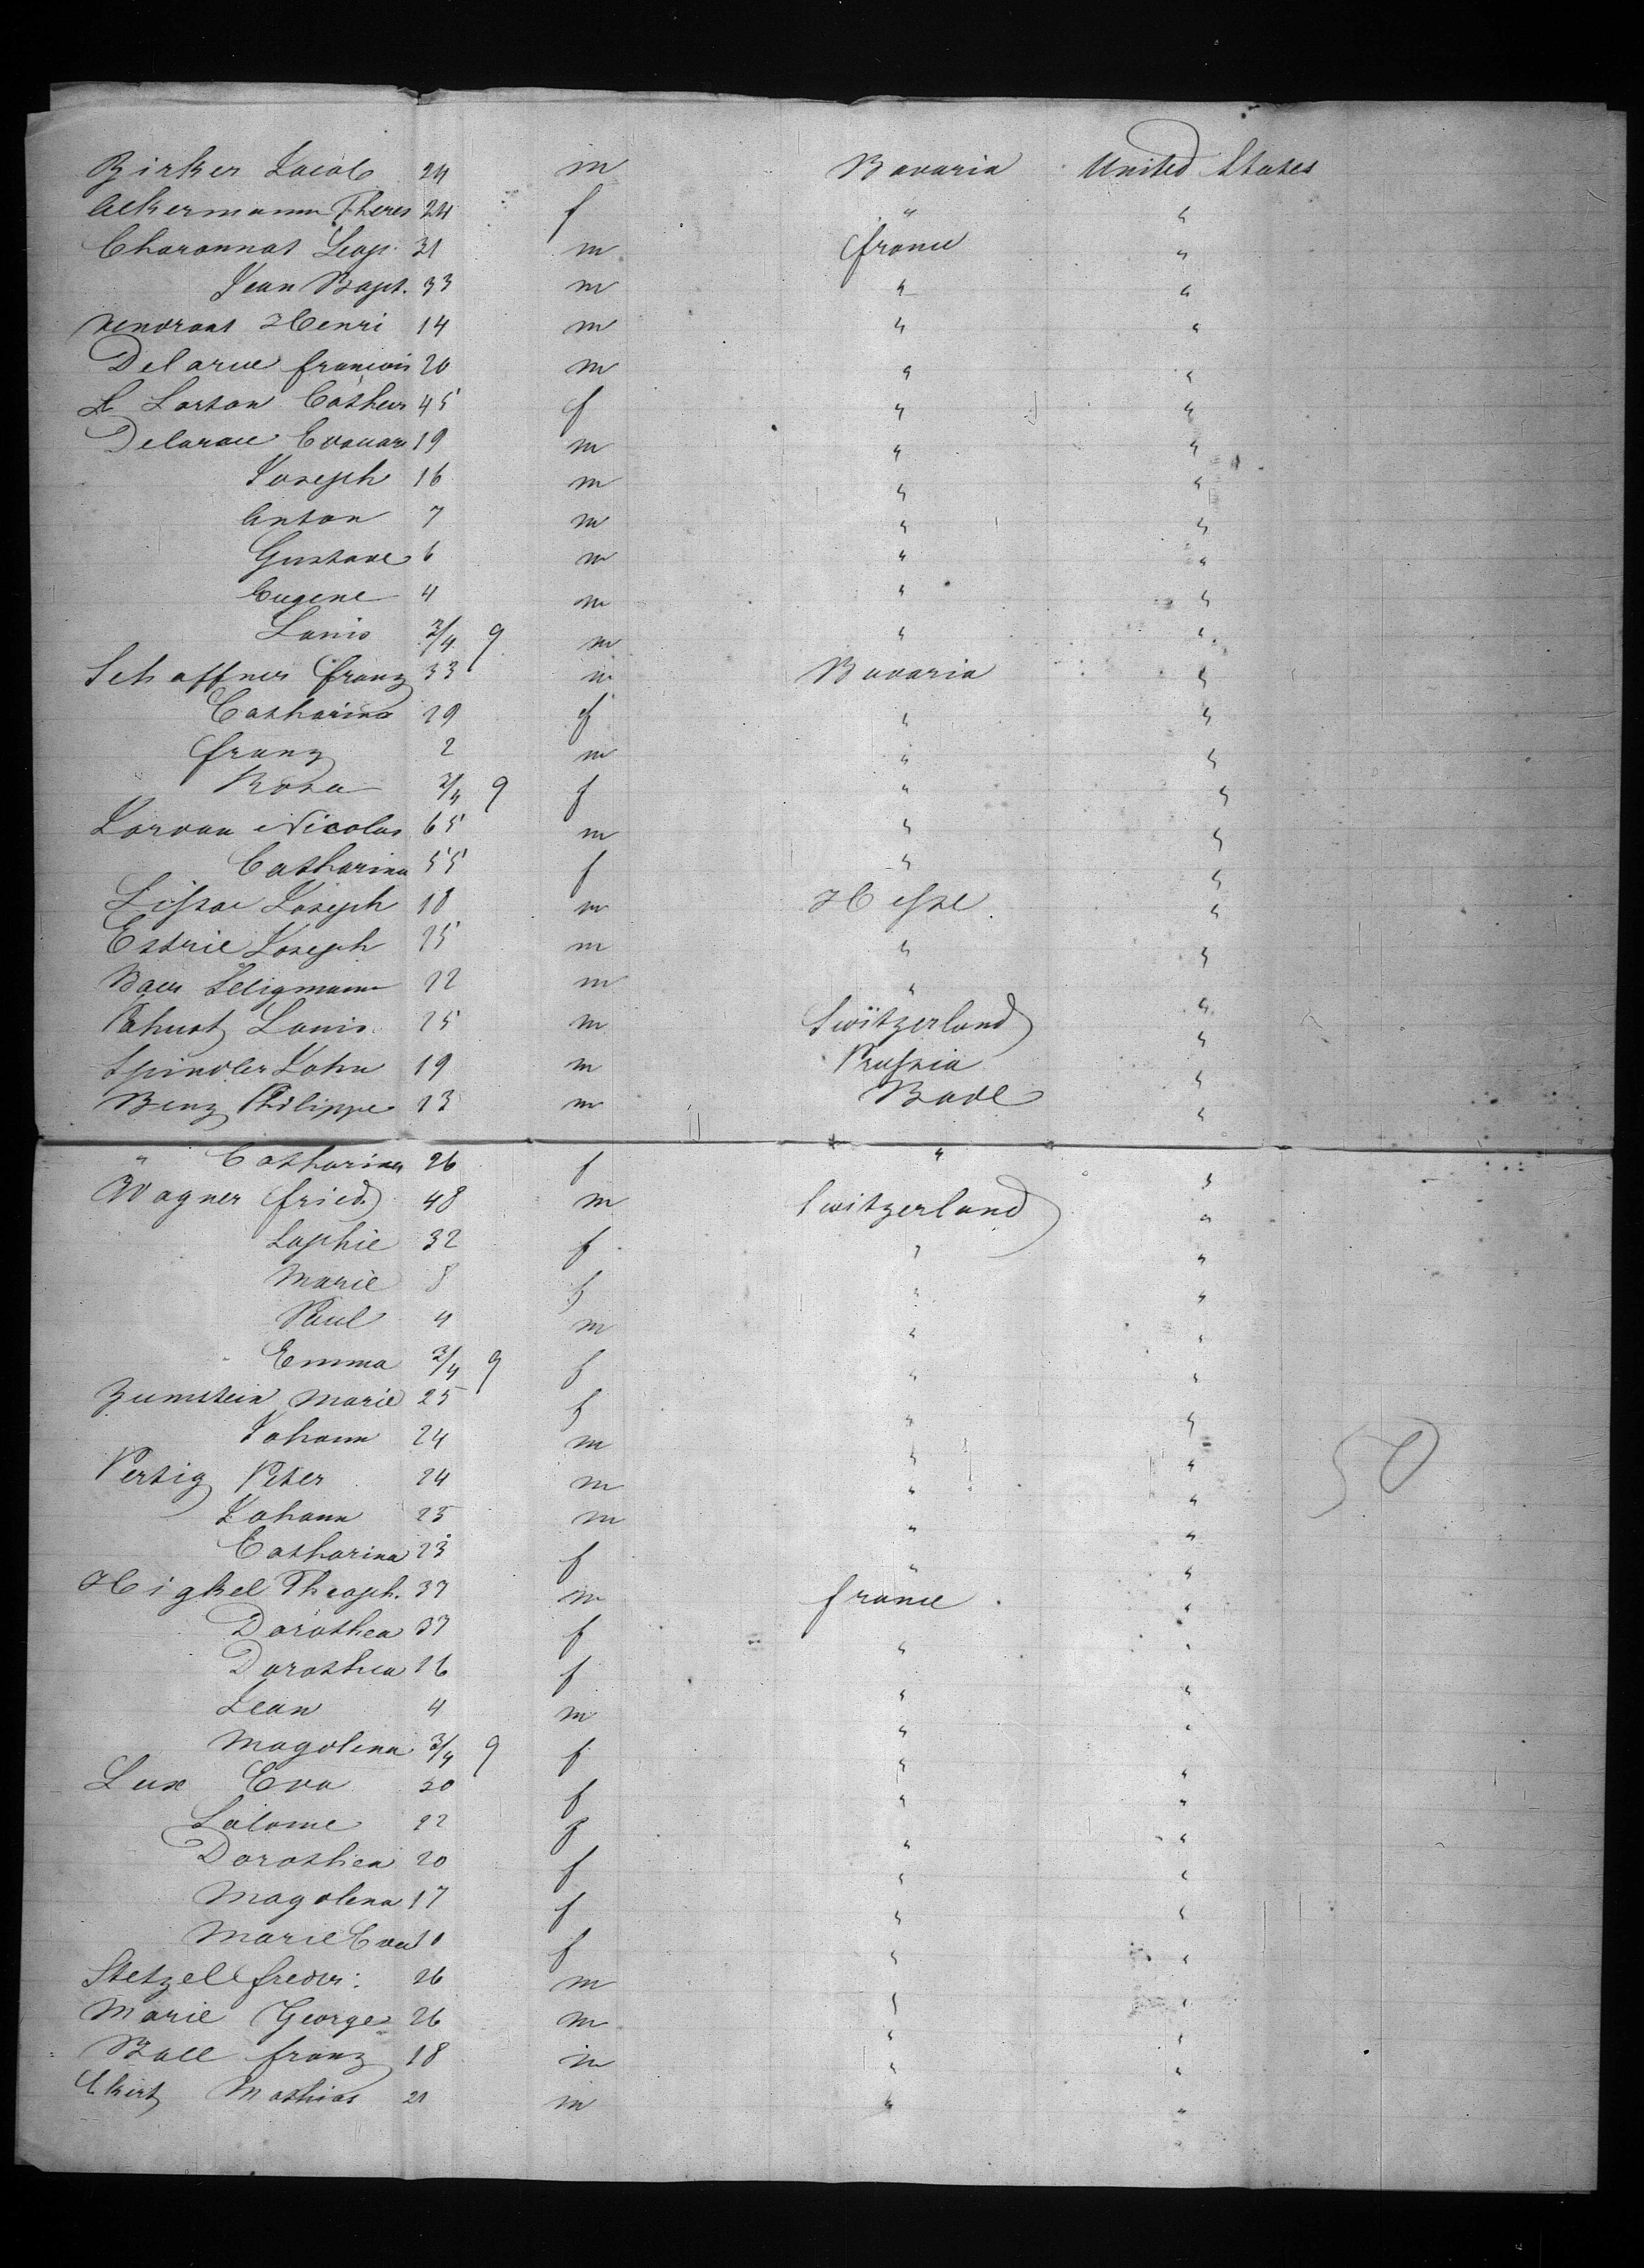 Birker Jacob 24 m Bavaria United States
Ackermann Theres 24 f " "
Charonnat Leop. 31 m france "
Jean Bapt. 33 m " "
Henri 14 m " "
Delarue francois 20 m " "
Lorton Cather 45 f " "
Delarue Edouard 19 m " "
Joseph 16 m " "
Anton 7 m " "
Gustave 6 m " "
Eugene 4 m " "
Louis 3/4 9 m " "
Schaffner franz 33 m Bavaria "
Catharina 29 f " "
franz 2 m " "
Rosa 3/4 9 f " "
Nicolas 65 m " "
Catharina 55 f " "
Joseph 18 m Hesse "
Joseph 25 m " "
Baer Seligmann 22 m " "
Louis 25 m Switzerland "
Spindler John 19 m Prussia "
Benz Philippe 23 m Bade "
" Catharina 26 f " "
Wagner fried. 48 m Switzerland "
Sophie 32 f " "
Marie 8 f " "
Paul 4 m " "
Emma 3/4 9 f " "
Zumstein Marie 25 f " "
Johann 24 m " "
Pertig Peter 24 m " " 50
Johann 25 m " "
Catharina 23 f " "
Higkel Theoph. 37 m france "
Dorothea 37 f " "
Dorothea 16 f " "
Jean 4 m " "
Magdlena 3/4 9 f " "
Lux Eva 50 f " "
Salome 22 f " "
Dorothea 20 f " "
Magdlena 17 f " "
Marie Eva 10 f " "
Stetzel freder: 26 m " "
Marie George 26 m " "
Ball franz 18 m " "
Ekert Mathias 21 m " "